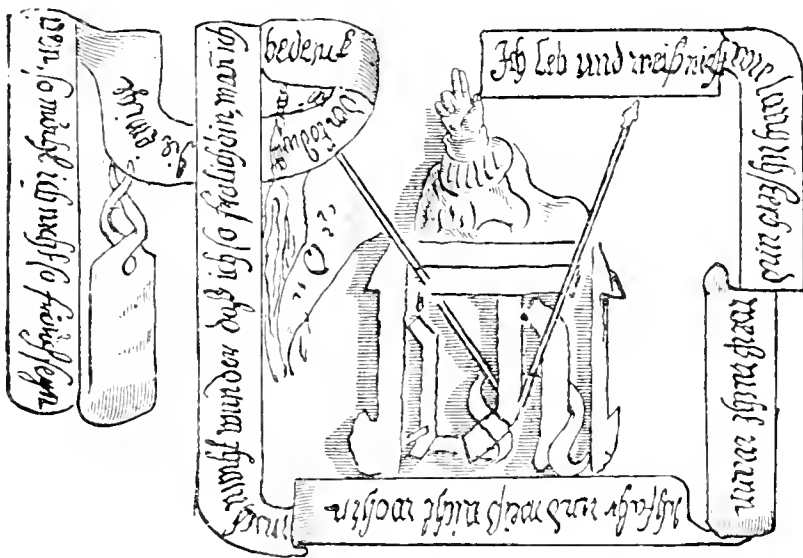 Ich leb und weiß nicht
wie lang ich sterb und
weiß nicht wann
ich fahr und weiß nicht wohin
mich
wunder daß ich so frolig bin, wan
bedenk
den todt
die ewige
so möcht ich nicht so frölich seyn